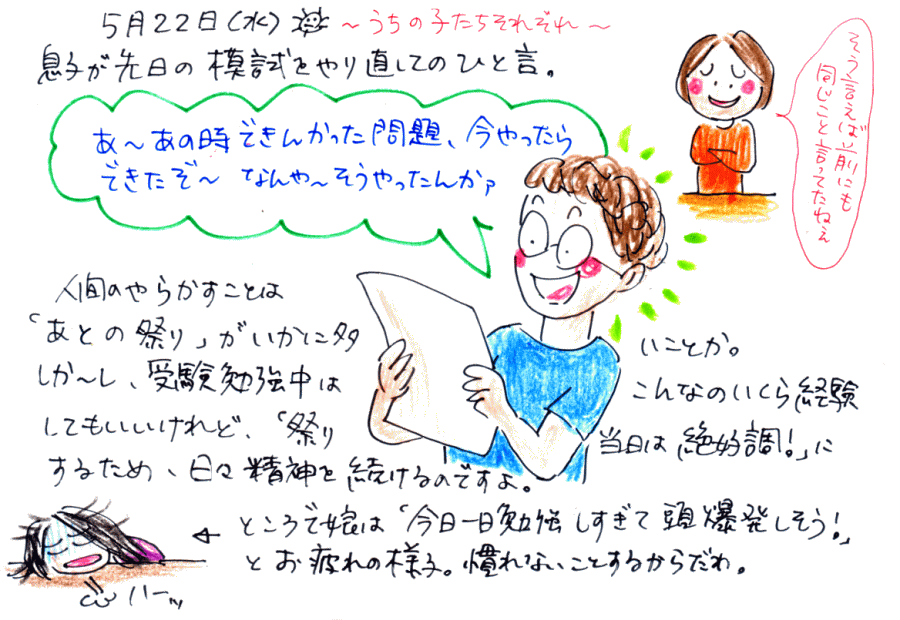 5月22日(水) ～うちの子たちそれぞれ～
息子が先日の模試をやり直してのひと言。
あ～あの時できんかった問題、今やったら
できたぞ～ なんや～そうやったんかァ
そう言えば前にも
同じこと言ってたねぇ
人間のやらかすことは
「あとの祭り」がいかに多いことか。
しか～し、受験勉強中はこんなのいくら経験
してもいいけれど、「祭り当日は絶好調！」に
するため、日々精神を続けるのですよ。
ところで娘は「今日一日勉強しすぎて頭爆発しそう！」
とお疲れの様子。慣れないことするからだわ。
ハーッ